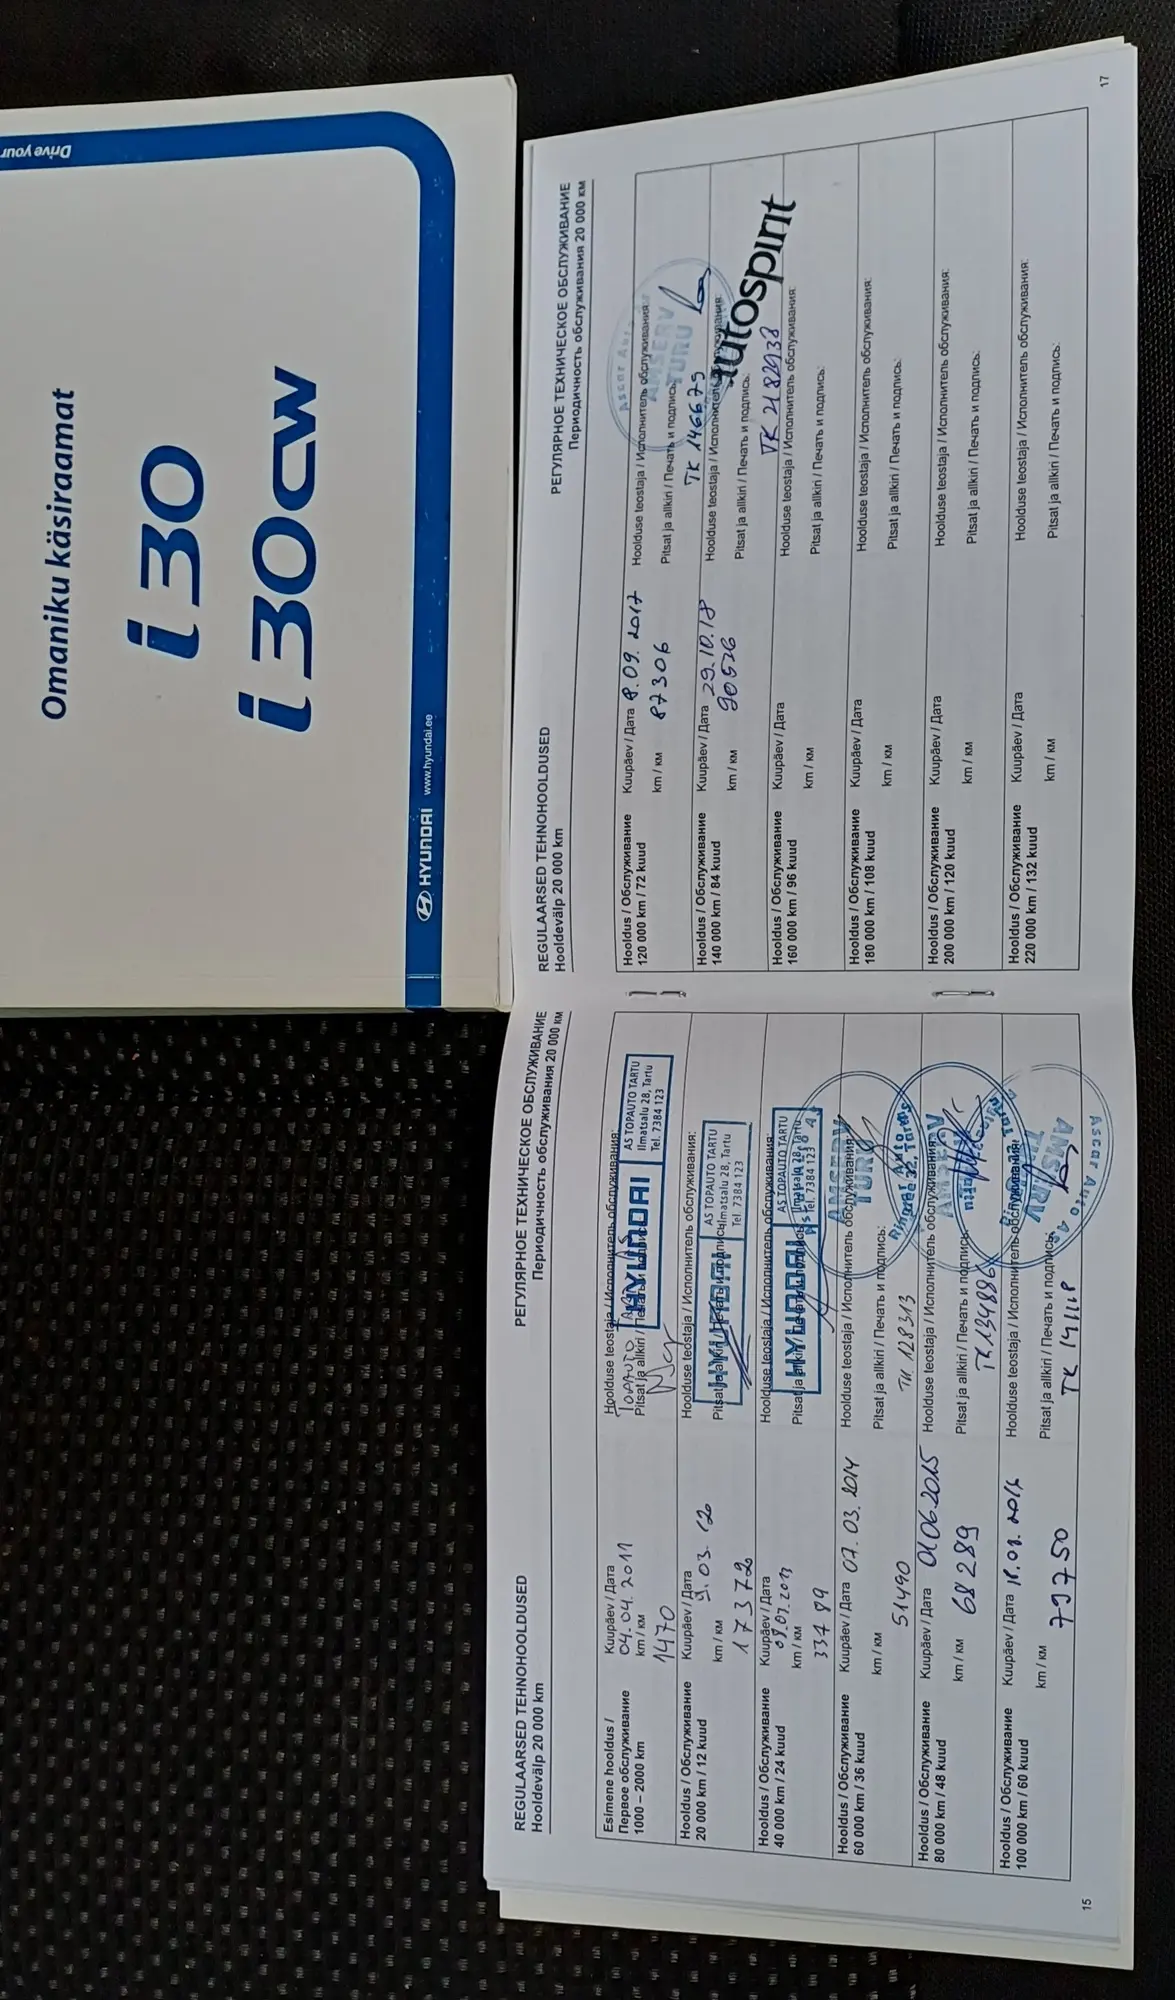 Drive your
Omaniku käsiraamat
i30
i30cw
HYUNDAI www.hyundai.ee
REGULAARSED TEHNOHOOLDUSED
Hooldevälp 20 000 km
РЕГУЛЯРНОЕ ТЕХНИЧЕСКОЕ ОБСЛУЖИВАНИЕ
Периодичность обслуживания 20 000 км
Esimene hooldus /
Первое обслуживание
1000 – 2000 km
Kuupäev / Дата
04.04.2011
km / км
1470
Hoolduse teostaja / Исполнитель обслуживания:
Pitsat ja allkiri / Печать и подпись:
HYUNDAI
AS TOPAUTO TARTU
Ilmatsalu 28, Tartu
Tel. 7384 123
Hooldus / Обслуживание
20 000 km / 12 kuud
Kuupäev / Дата
9.03.12
km / км
17372
Hoolduse teostaja / Исполнитель обслуживания:
Pitsat ja allkiri / Печать и подпись:
HYUNDAI
AS TOPAUTO TARTU
Ilmatsalu 28, Tartu
Tel. 7384 123
Hooldus / Обслуживание
40 000 km / 24 kuud
Kuupäev / Дата
08.01.2013
km / км
33489
Hoolduse teostaja / Исполнитель обслуживания:
Pitsat ja allkiri / Печать и подпись:
HYUNDAI
AS TOPAUTO TARTU
Ilmatsalu 28, Tartu
Tel. 7384 123
Hooldus / Обслуживание
60 000 km / 36 kuud
Kuupäev / Дата 07.03.2014
km / км
51490
Hoolduse teostaja / Исполнитель обслуживания:
Pitsat ja allkiri / Печать и подпись:
AMSERV
TURU
128313
Hooldus / Обслуживание
80 000 km / 48 kuud
Kuupäev / Дата 01.06.2015
km / км 68289
Hoolduse teostaja / Исполнитель обслуживания:
Pitsat ja allkiri / Печать и подпись:
AMSERV
TK 134886
Hooldus / Обслуживание
100 000 km / 60 kuud
Kuupäev / Дата
km / км 79750
Hoolduse teostaja / Исполнитель обслуживания:
Pitsat ja allkiri / Печать и подпись:
Ascar Auto AS
AMSERV
15
REGULAARSED TEHNOHOOLDUSED
Hooldevälp 20 000 km
РЕГУЛЯРНОЕ ТЕХНИЧЕСКОЕ ОБСЛУЖИВАНИЕ
Периодичность обслуживания 20 000 км
Hooldus / Обслуживание
120 000 km / 72 kuud
Kuupäev / Дата 8.09.2017
km / км 87306
Hoolduse teostaja / Исполнитель обслуживания:
Pitsat ja allkiri / Печать и подпись:
AMSERV
TURU
TK 146675
Hooldus / Обслуживание
140 000 km / 84 kuud
Kuupäev / Дата 29.10.18
km / км 90526
Hoolduse teostaja / Исполнитель обслуживания:
Pitsat ja allkiri / Печать и подпись:
autospirit
TK 2182938
Hooldus / Обслуживание
160 000 km / 96 kuud
Kuupäev / Дата
km / км
Hoolduse teostaja / Исполнитель обслуживания:
Pitsat ja allkiri / Печать и подпись:
Hooldus / Обслуживание
180 000 km / 108 kuud
Kuupäev / Дата
km / км
Hoolduse teostaja / Исполнитель обслуживания:
Pitsat ja allkiri / Печать и подпись:
Hooldus / Обслуживание
200 000 km / 120 kuud
Kuupäev / Дата
km / км
Hoolduse teostaja / Исполнитель обслуживания:
Pitsat ja allkiri / Печать и подпись:
Hooldus / Обслуживание
220 000 km / 132 kuud
Kuupäev / Дата
km / км
Hoolduse teostaja / Исполнитель обслуживания:
Pitsat ja allkiri / Печать и подпись:
17